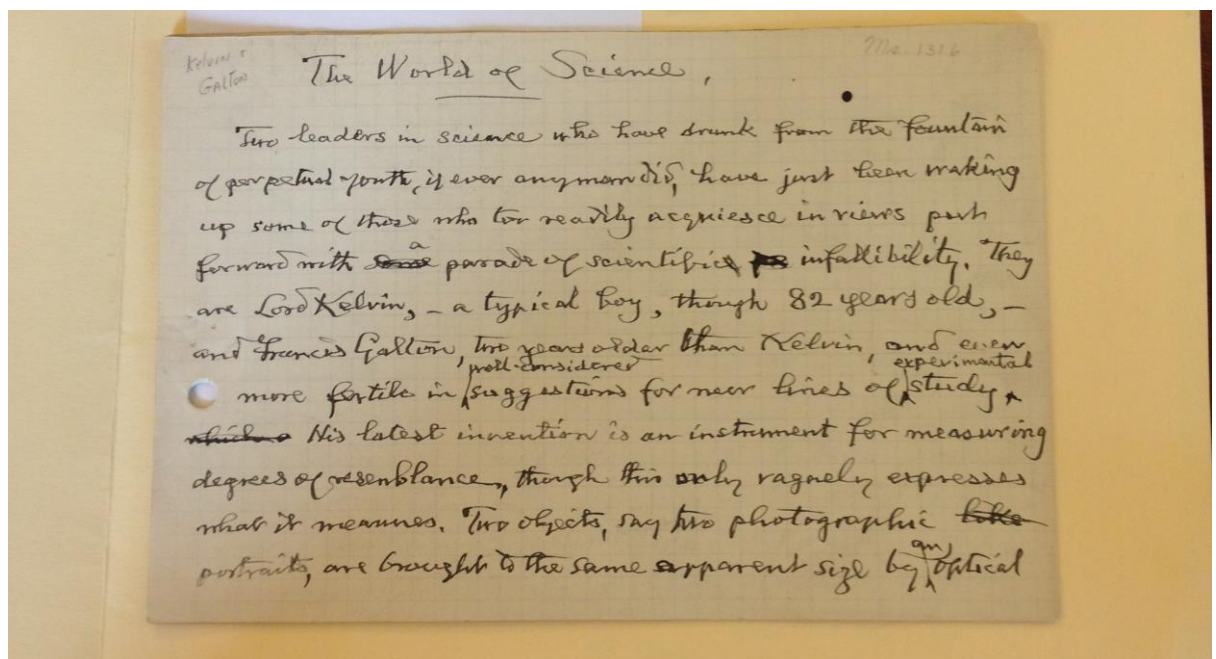 Kelvin &
Galton
Ms. 1316
The World of Science.
Two leaders in science who have drunk from the fountain
of perpetual youth, if ever any man did, have just been waking
up some of those who too readily acquiesce in views put
forward with a parade of scientific infallibility. They
are Lord Kelvin, – a typical boy, though 82 years old, –
and Francis Galton, two years older than Kelvin, and even
more fertile in well-considered suggestions for new lines of experimental study.
which His latest invention is an instrument for measuring
degrees of resemblance, though this only vaguely expresses
what it measures. Two objects, say two photographic
portraits, are brought to the same apparent size by an optical